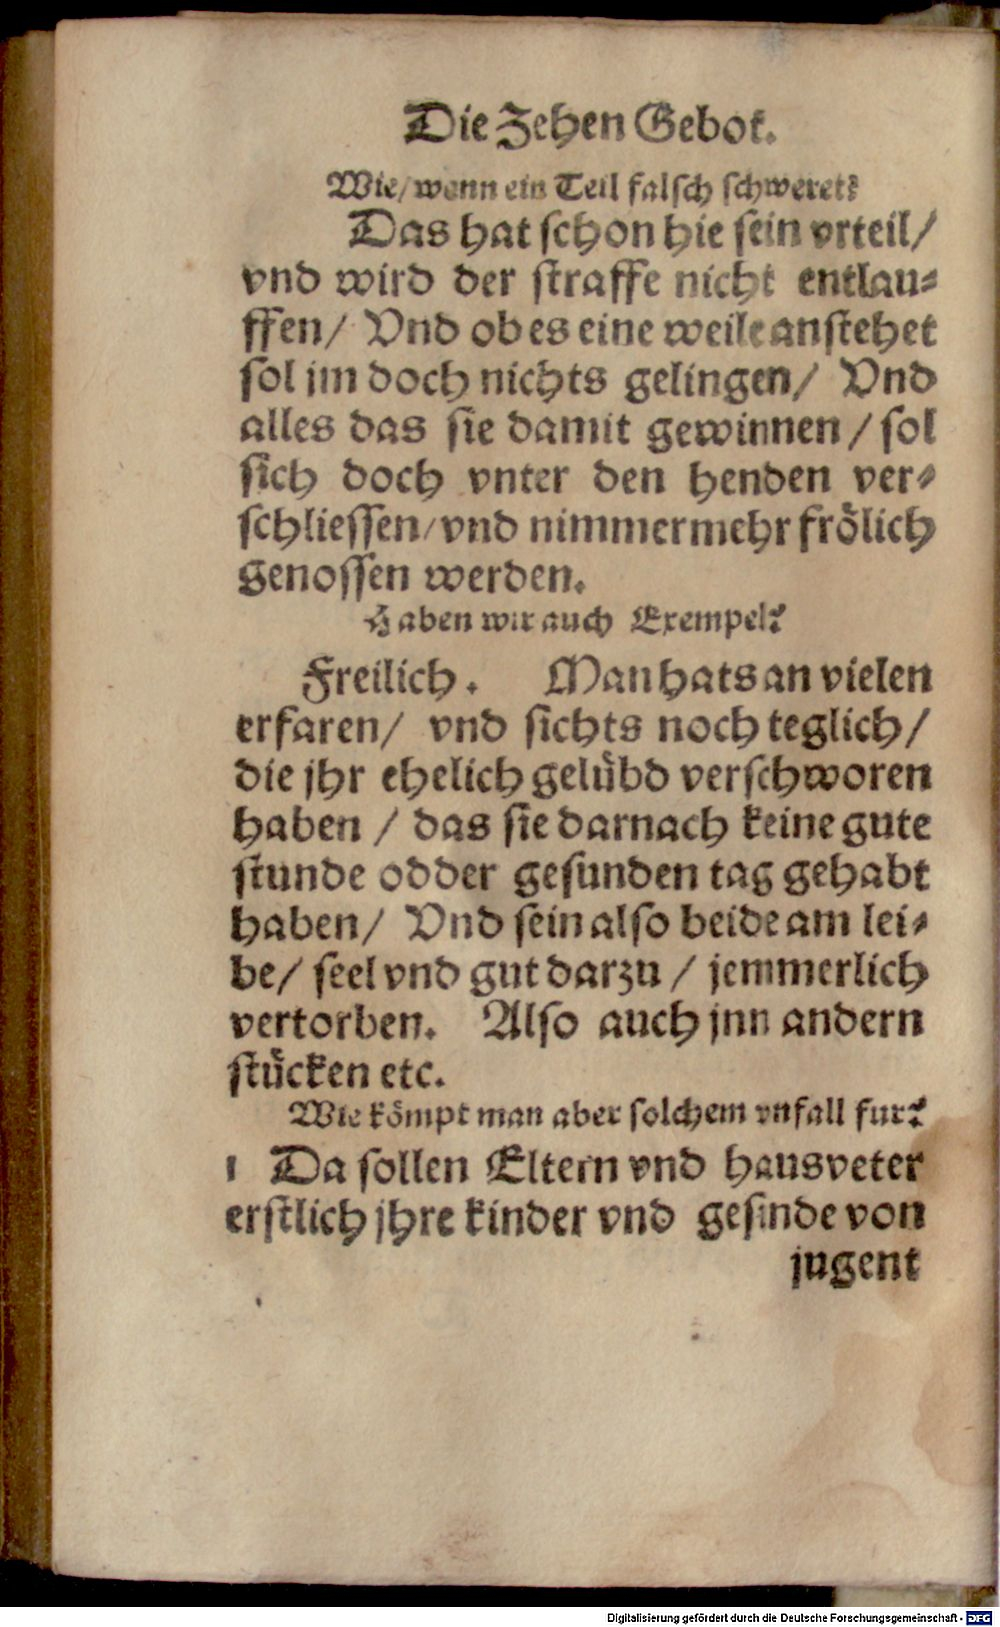 Die Zehen Gebot.
Wie/ wenn ein Teil falsch schweret?
Das hat schon hie sein vrteil/
vnd wird der straffe nicht entlau⸗
ffen/ Vnd ob es eine weile anstehet
sol jm doch nichts gelingen/ Vnd
alles das sie damit gewinnen / sol
sich doch vnter den henden ver⸗
schliessen/ vnd nimmermehr frölich
genossen werden.
Haben wir auch Exempel?
Freilich. Man hats an vielen
erfaren/ vnd sichts noch teglich/
die jhr ehelich gelübd verschworen
haben / das sie darnach keine gute
stunde odder gesunden tag gehabt
haben/ Vnd sein also beide am lei⸗
be/ seel vnd gut darzu / jemmerlich
vertorben. Also auch jnn andern
stücken etc.
Wie kömpt man aber solchem vnfall fur?
1 Da sollen Eltern vnd hausveter
erstlich jhre kinder vnd gesinde von
jugent
Digitalisierung gefördert durch die Deutsche Forschungsgemeinschaft - DFG